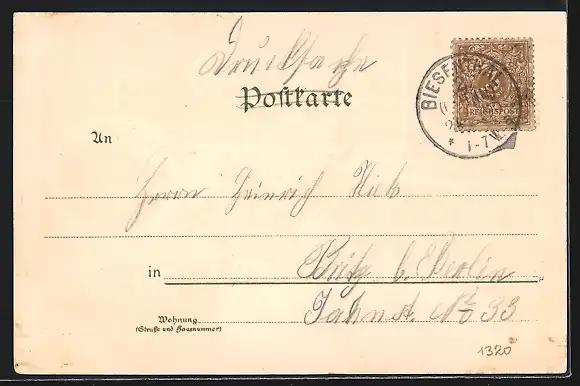 Drucksache
Postkarte
BIESENTHAL
REICHSPOST
* 1-7 N.
An
Herrn Heinrich Kick
in Britz b. Berlin
Wohnung
(Straße und Hausnummer)
Jahnst. No 33
1320